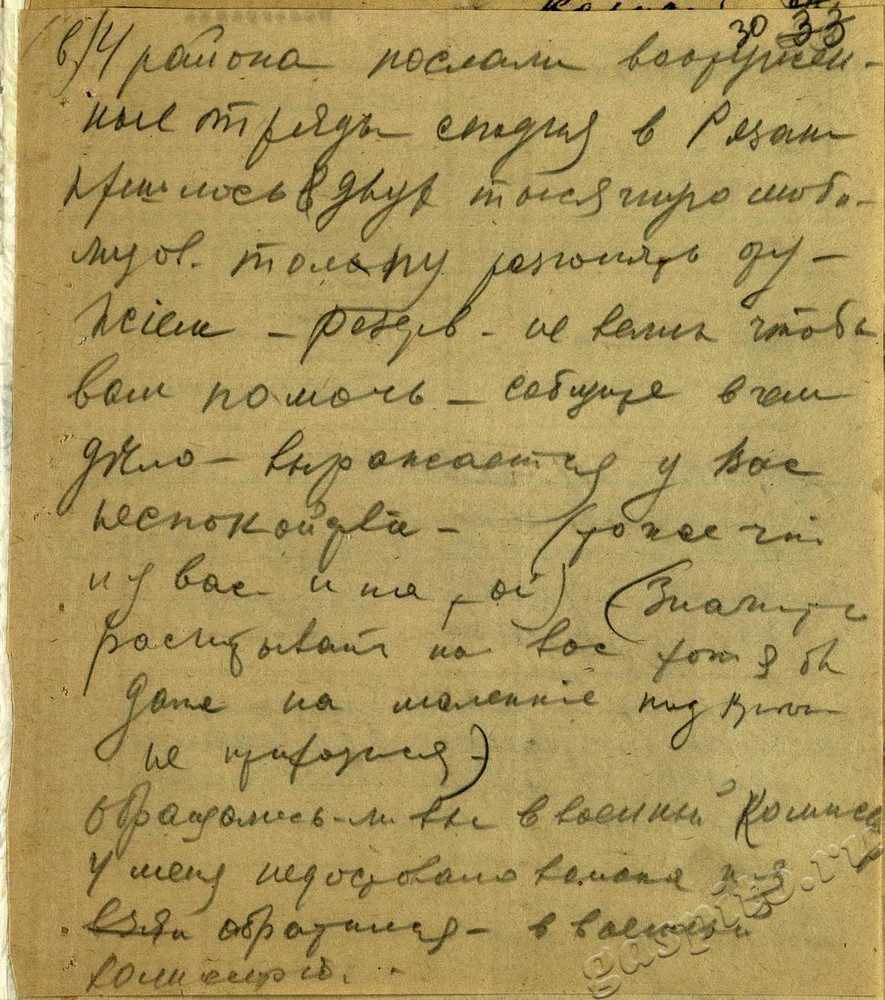 30 33
в) 4 района послали вооружен-
ные отряды сегодня в Рязани
пришлось в двух тысячную моби-
лизов. толпу разгонять ору-
жіем – резерв – не велик чтобы
вам помочь – сообщите в чем
дѣло – выражается у вас
неспокойствие – (тоже что
и у вас и на
(Значит
расчитывать на вас хотя бы
даже на маленькіе подкреп
не приходится)
обращались-ли вы в военный комисс
У меня недоставало
взяли обратился – в военный
комисар.
gaspito.ru